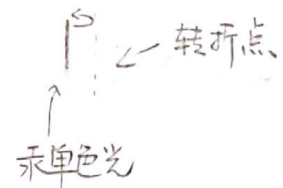 转折点
汞单色光